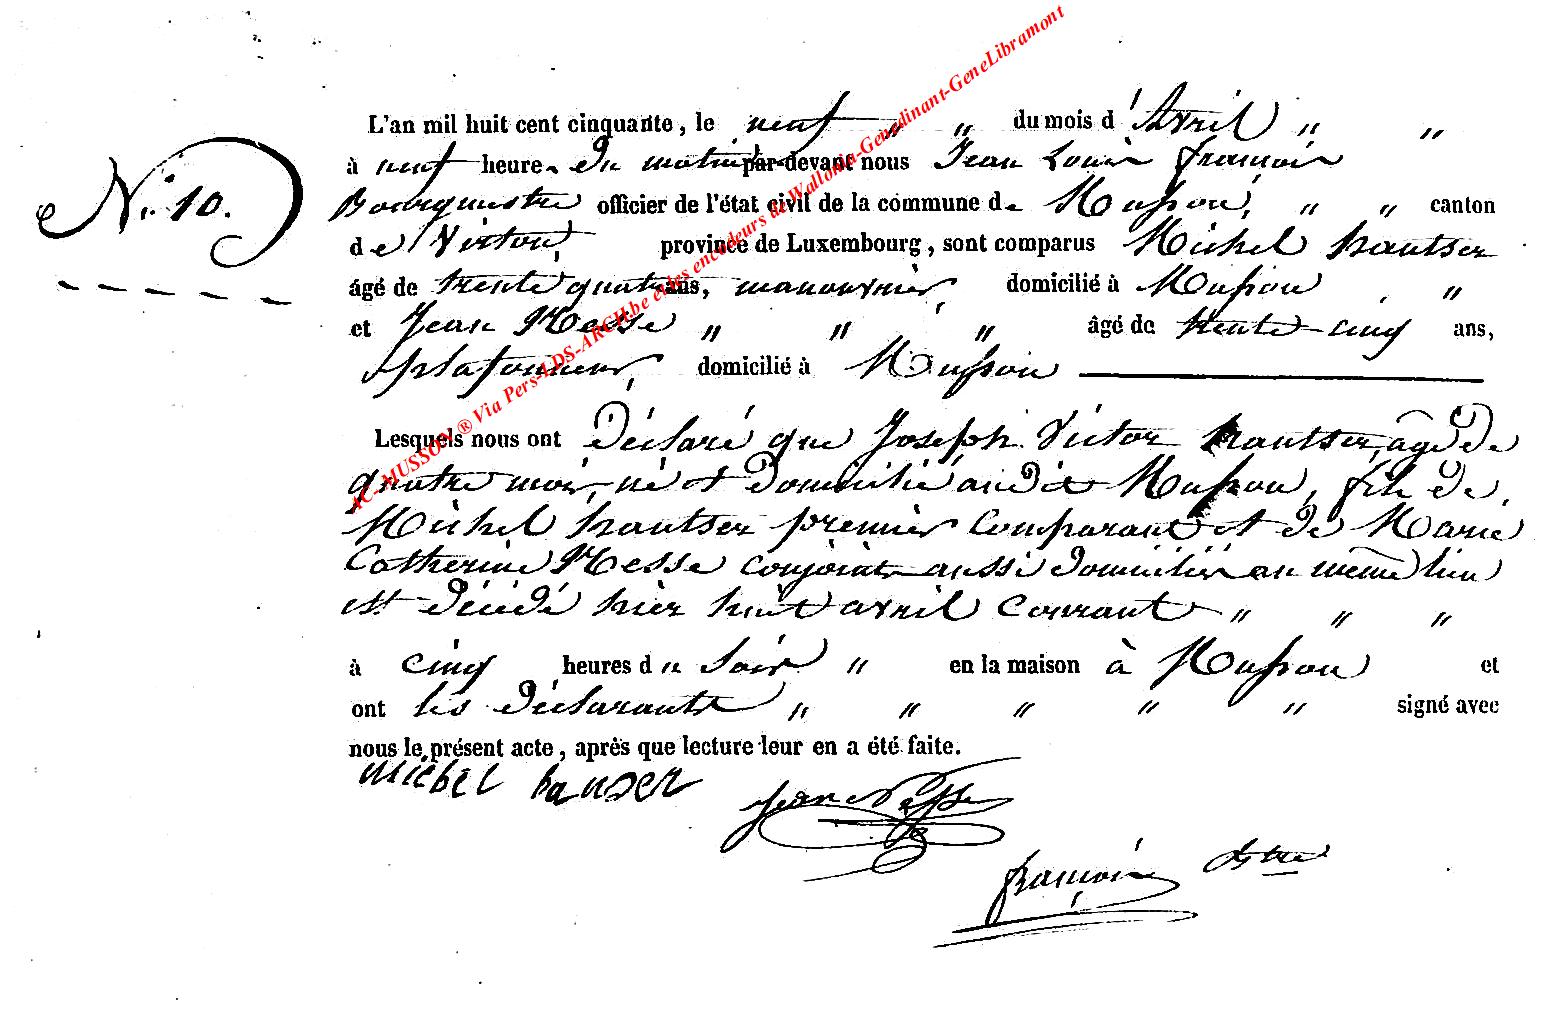 N° 10.
L'an mil huit cent cinquante, le neuf " " du mois d'Avril " "
à neuf heures du matin par-devant nous Jean Louis François
Bourgmestre officier de l'état civil de la commune de Musson, " " canton
de Virton, province de Luxembourg, sont comparus Michel hautser
âgé de trente quatre ans, manouvrier, domicilié à Musson , "
et Jean Nesse " " " âgé de trente-cinq ans,
plafonneur, domicilié à Musson
Lesquels nous ont Déclaré que Joseph Victor hautser, âgé de
quatre mois, né et Domicilié audit Musson, fils de,
Michel hautser premier Comparant et de Marie
Catherine Nesse conjoints aussi domiciliés au même lieu
est décédé hier huit avril Courant " " "
à cinq heures du Soir " en la maison à Musson et
ont les déclarants " " " " " signé avec
nous le présent acte, après que lecture leur en a été faite.
Michel hauser
Jean Nesse
françois
AC-MUSSON ® Via Pers-LDS-ARCH.be et des encodeurs de Wallonia-Genedinant-GeneLibramont